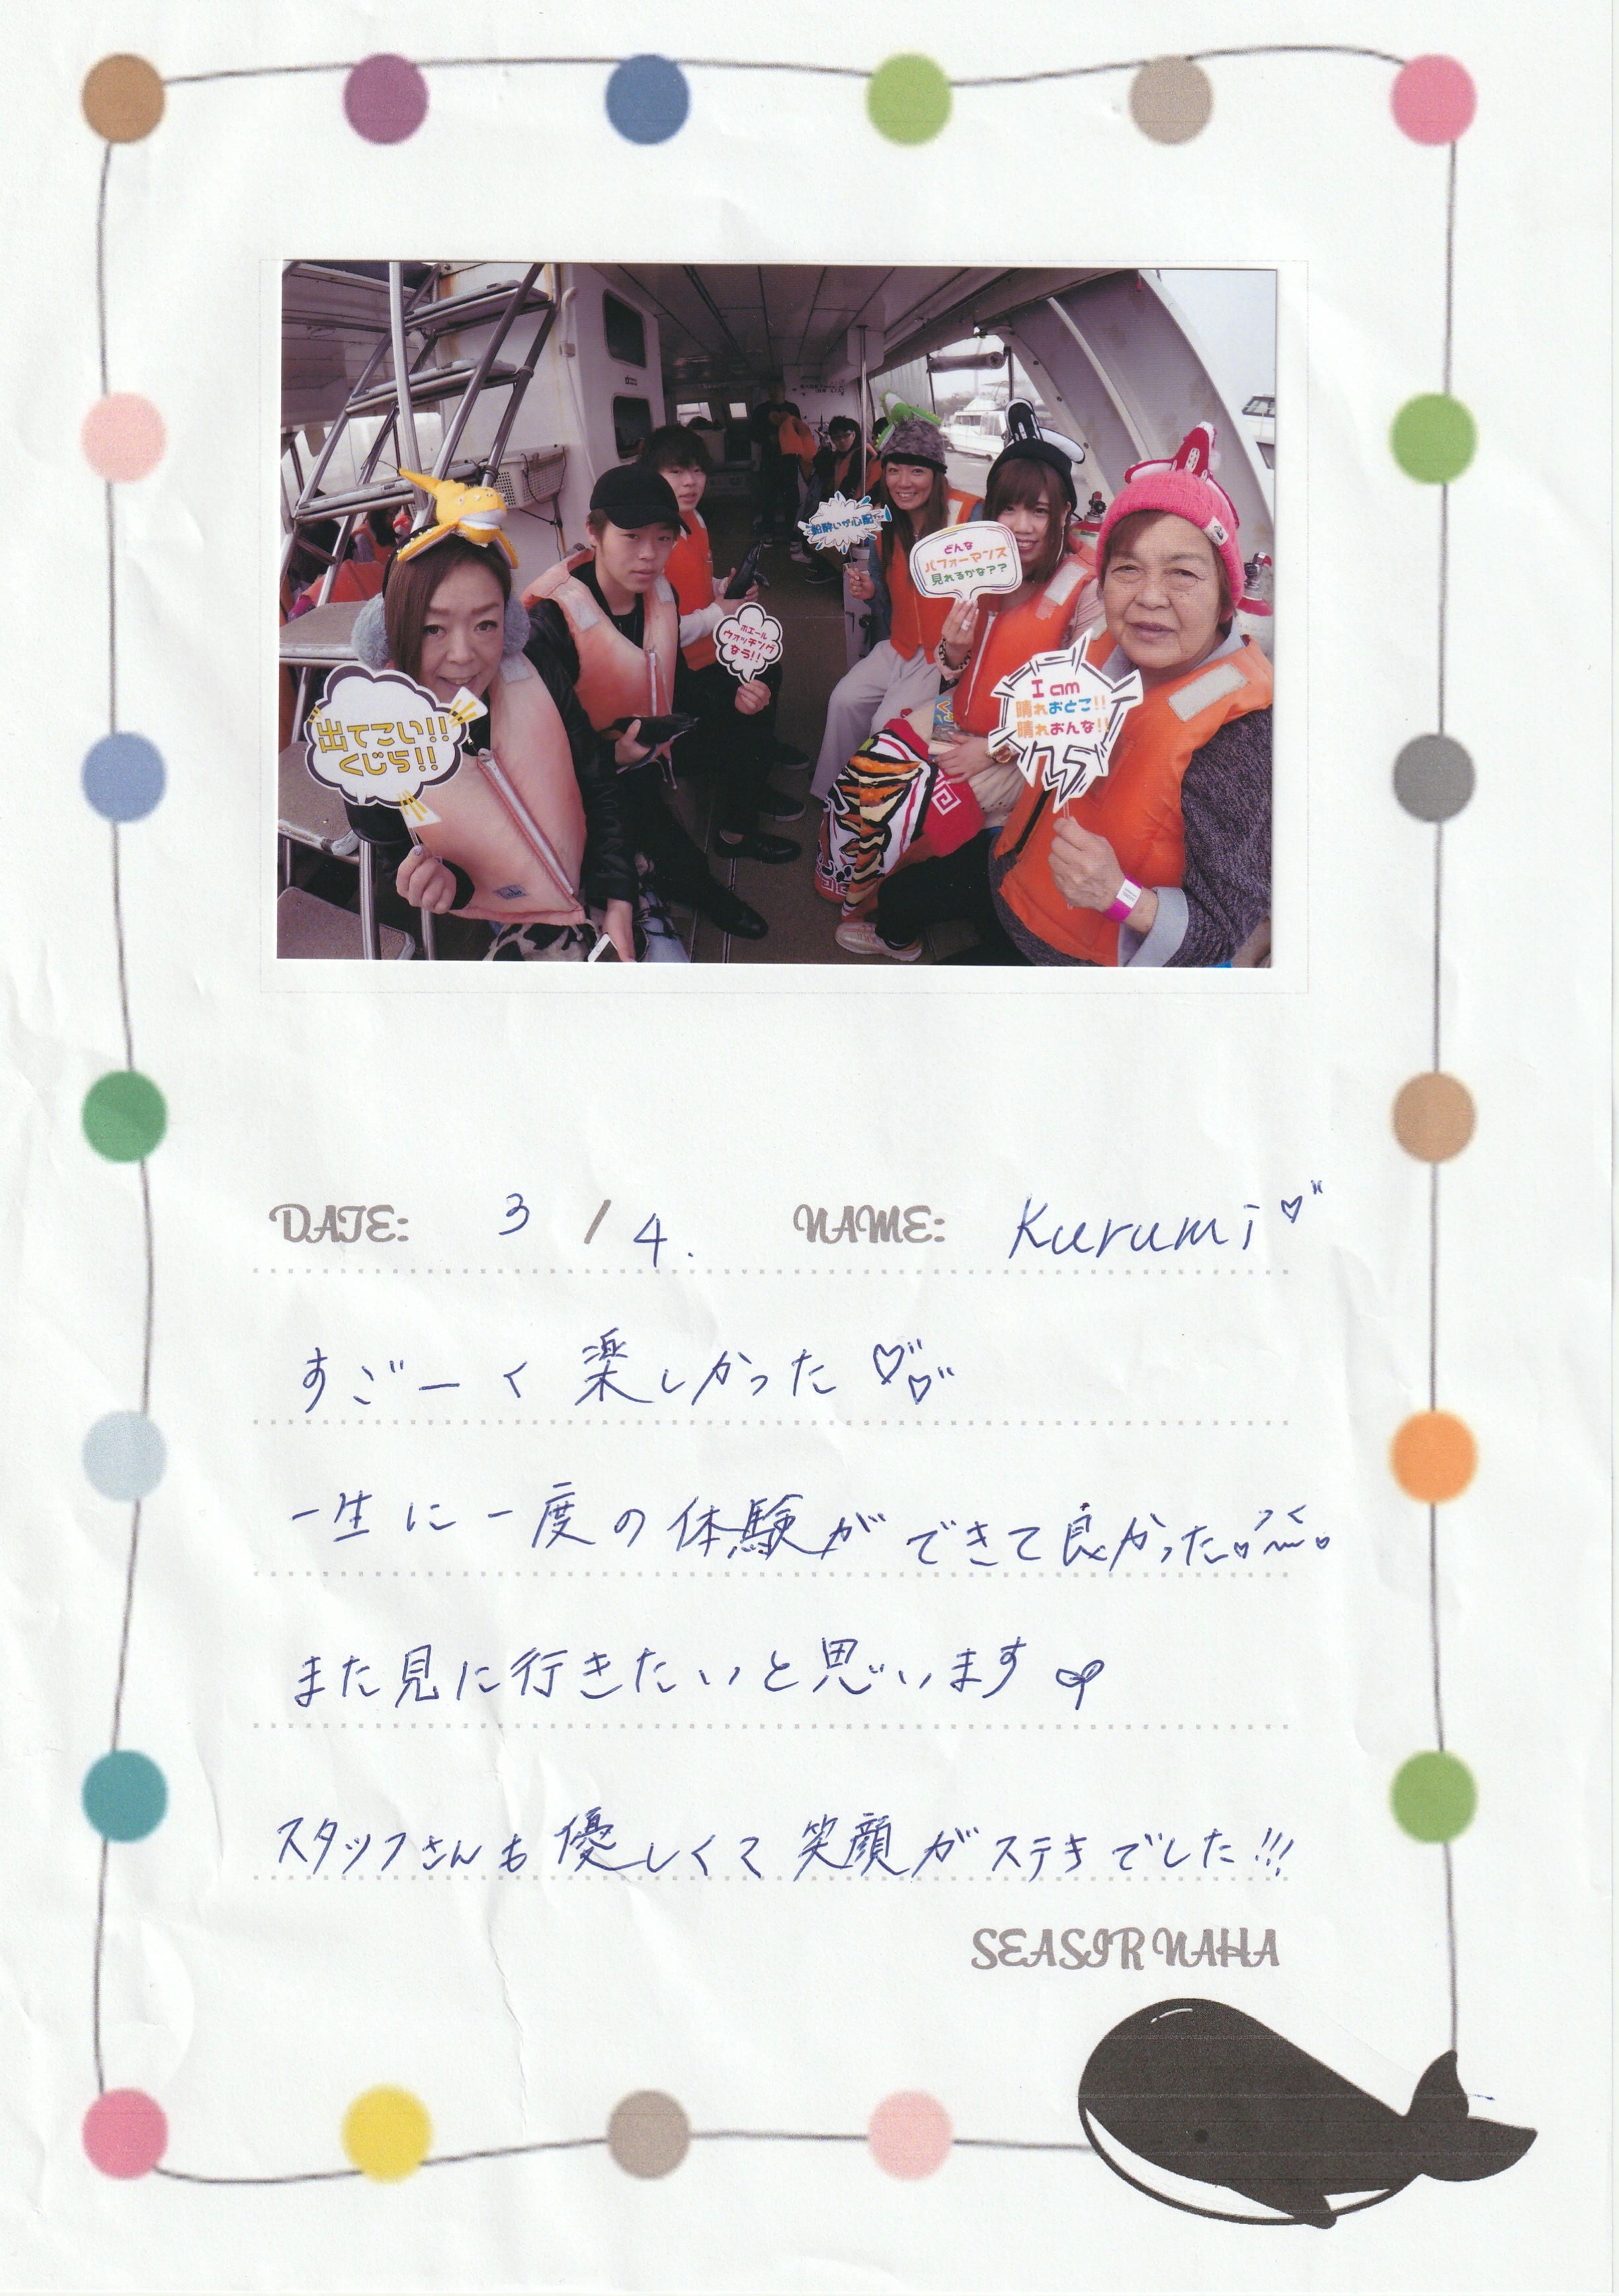 船酔いが心配
どんな
パフォーマンス
見れるかな??
ホエール
ウォッチング
なう!!
I am
晴れおとこ!!
晴れおんな!!
出てこい!!
くじら!!
DATE: 3 / 4. NAME: Kurumi♡
すごーく楽しかった♡♡
一生に一度の体験ができて良かった
また見に行きたいと思います
スタッフさんも優しくて笑顔がステキでした!!!
SEASIR NAHA